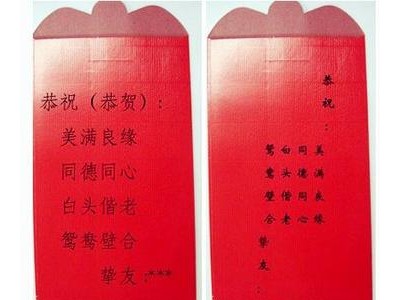 恭祝（恭贺）：
美满良缘
同德同心
白头偕老
鸳鸯壁合
挚友：***
恭祝：
美满良缘
同德同心
白头偕老
鸳鸯壁合
挚友：